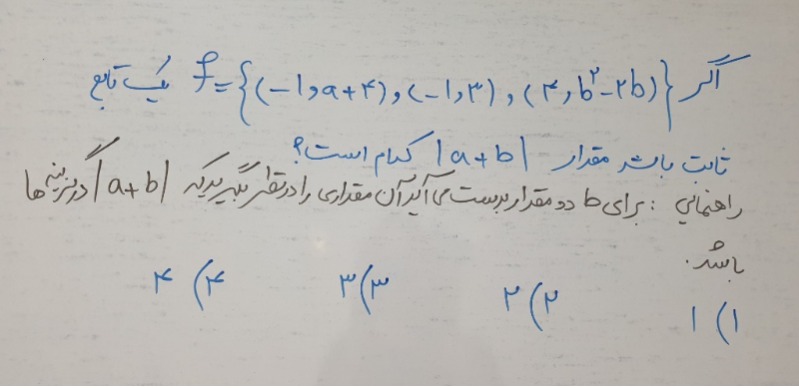 اگر f={(-1,a+۴),(-1,۳),(۴,b^۲-۲b)} یک تابع
ثابت باشد مقدار |a+b| کدام است؟
راهنمایی : برای b دو مقدار بدست می آید آن مقداری را در نظر بگیرید که |a+b| در گزینه ها
باشد.
۱) ۱ ۲) ۲ ۳) ۳ ۴) ۴